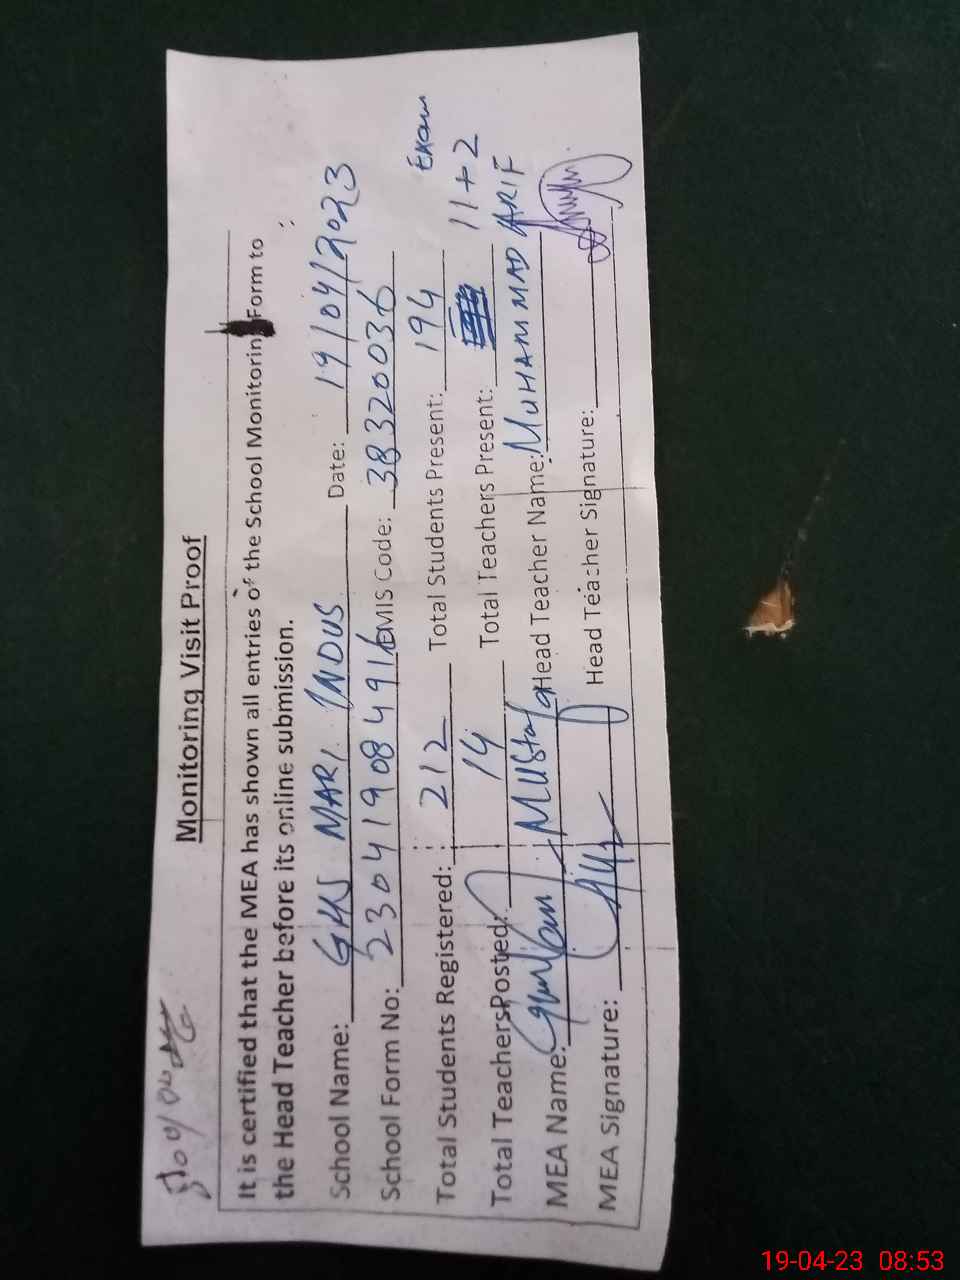 Monitoring Visit Proof
It is certified that the MEA has shown all entries of the School Monitoring Form to
the Head Teacher before its online submission.
School Name: GHS MARI INDUS Date: 19/04/2023
School Form No: 23041908491 EMIS Code: 38320036
Total Students Registered: 212 Total Students Present: 194
Total Teachers Posted: 14 Total Teachers Present: 11+2 Exam
MEA Name: Ghulam Mustafa Head Teacher Name: MUHAMMAD ARIF
MEA Signature: Head Teacher Signature:
19-04-23 08:53